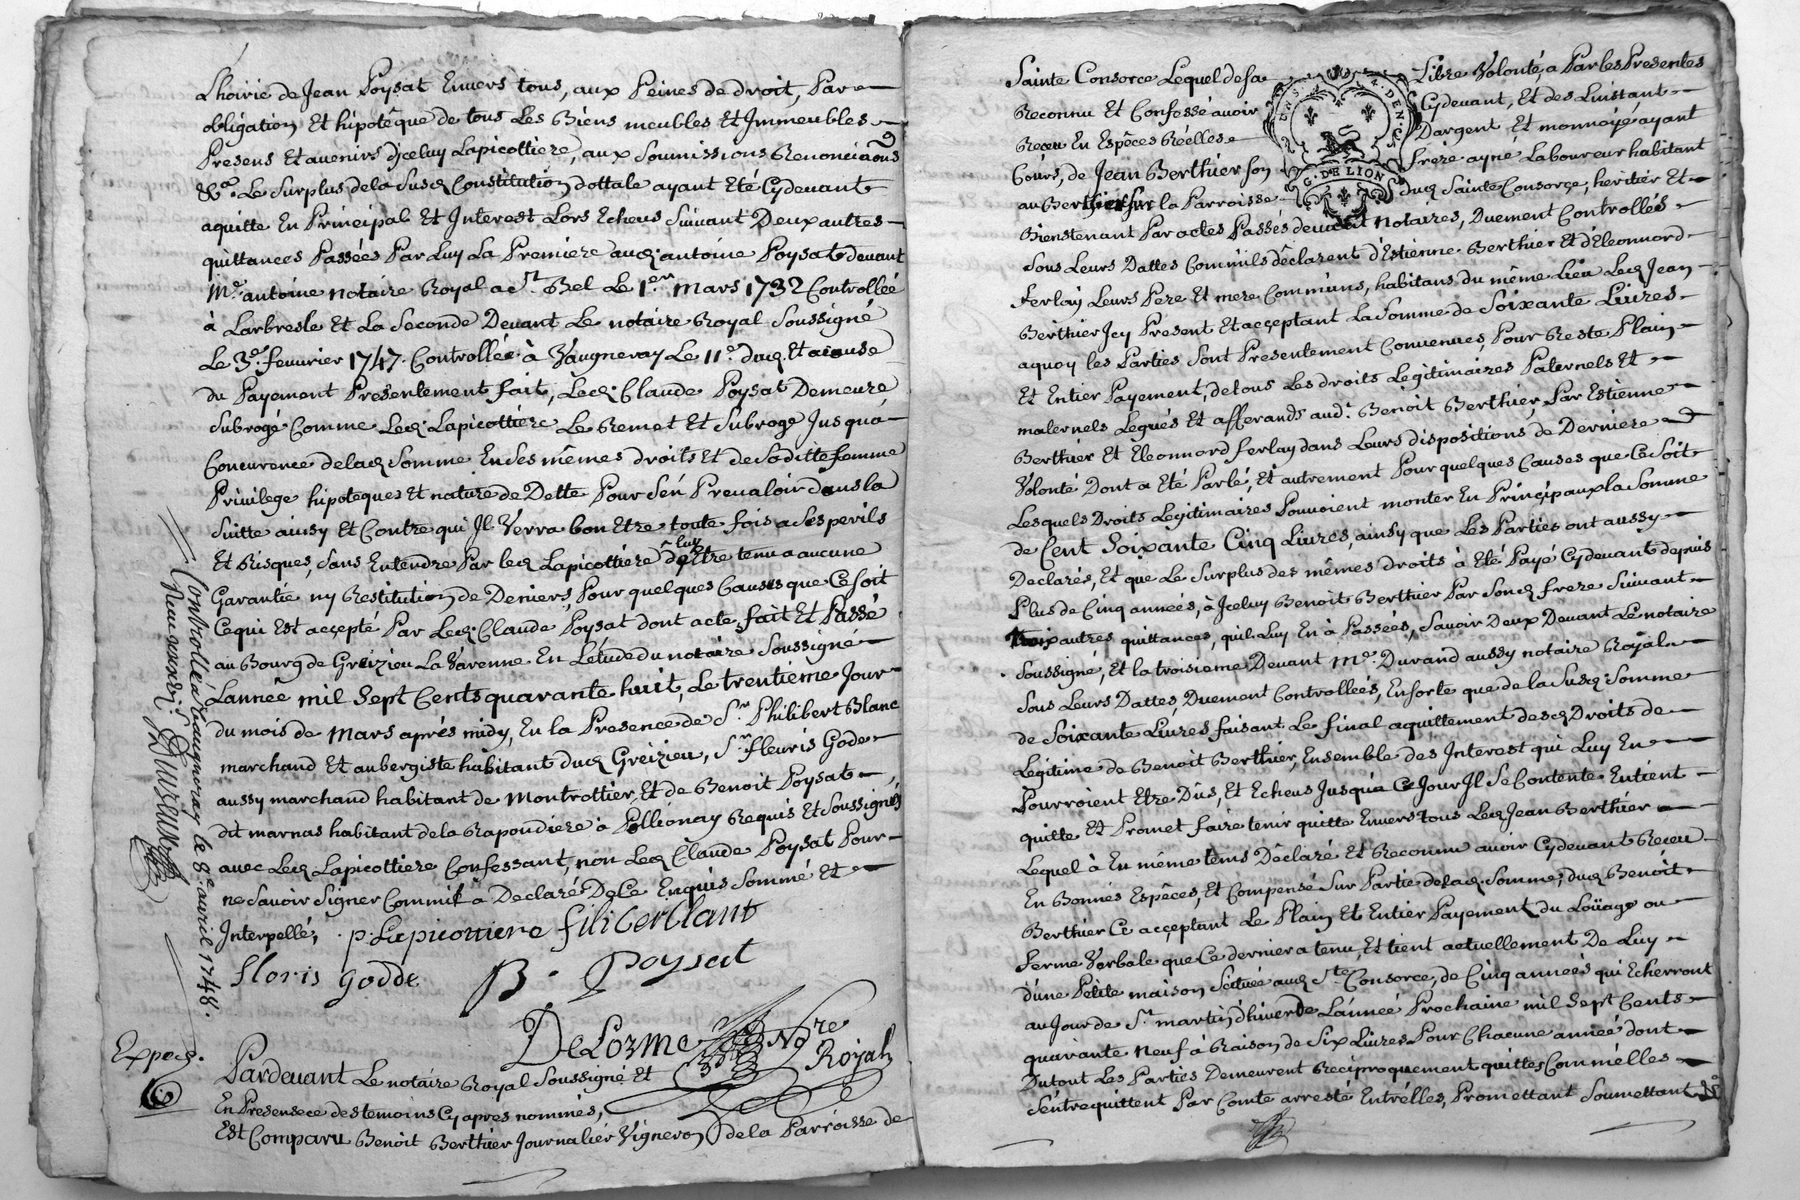 Lhoirie de Jean Poysat Envers tous, aux Peines de droit, Par
obligation Et hipotêque de tous Les Biens meubles Et Immeubles
Presens Et avenirs d'jceluy Lapicottiere, aux Soumissions Renonciaons
&a. Le Surplus de la Susd Constitution dottale ayant Eté Cydevant
aquitte En Principal Et Interest Lors Echeus Suivant Deux autres
quittances Passées Par Luy La Premiere aud. antoine Poysat devant
Me. antoine notaire Royal a St. Bel Le 1er. Mars 1732 Controllée
à Larbresle Et La Seconde Devant Le notaire Royal Soussigné
Le 3e. fevurier 1747. Controllée à Vaugneray Le 11e. dud. Et a cause
du Payement Presentement fait, Led. Claude Poysat Demeure
Subrogé Comme Led. Lapicottiére Le Remet Et Subroge Jusqua
Concurence delad. Somme En Ses mêmes droits Et de Saditte femme
Privilege hipoteques Et nature de Dette Pour S'en Prevaloir dans la
Suitte ainsy Et Contre qui Jl Verra bon Etre toute fois a Ses perils
Et Risques, Sans Entendre Par led. Lapicottiere luy Etre tenu a aucune
Garantie ny Restitution de Deniers, Pour quelques Causes que Ce Soit
Ce qui Est accepté Par Led. Claude Poysat dont acte, fait Et Passé
au Bourg de Greizieu La Varenne En Letude du notaire Soussigné
Lannée mil Sept Cents quarante huit, Le trentieme Jour
du mois de Mars aprés midy, En la Presence de Sr. Philibert Blanc
marchand Et aubergiste habitant dud. Greizieu, Sr. fleuris Gode
aussy marchand habitant de Montrottier, Et de Benoit Poysat
dit marnas habitant de la Rapoudiere à Pollionay Requis Et Soussignés
avec Led. Lapicottiere Confessant, non Led. Claude Poysat Pour
ne Savoir Signer Commil à Declaré De Ce Enquis Sommé Et
Interpellé, p. Lapicottiere filiberblanc
floris godde B. Poysat
DeLorme Nre
Royal
Controllé a Vaugneray le 8e. avril 1748.
Expéd.
Pardevant Le notaire Royal Soussigné Et
En Presensece des temoins Cyapres nommés,
Est Comparu Benoit Berthier Journaliér Vigneron de la Parroisse de
Sainte Consorce Lequel de Sa Libre Volonté, a Par les Presentes
Reconnu Et Confessé avoir Cydevant, Et dés Linstant
Receu En Espêces Réelles Dargent Et monnoyé ayant
Cours, de Jean Berthier Son frére ayne Laboureur habitant
au Berthier Sur la Parroisse dud. Sainte Consorce, heritier Et
G. DE LION
Bienstenant Par actes Passés devant Notaires, Duement Controllés
Sous Leurs Dattes Commils déclarent d'Estienne Berthier Et d'Eleonnord
Ferlay Leurs Pere Et mere Communs, habitans du même Lieu Led. Jean
Berthier Jcy Present Et acceptant La Somme de Soixante Livres
aquoy les Parties Sont Presentement Convenues, Pour Reste Plain
Et Entier Payement, de tous Les droits Legitimaires Paternels Et
maternels Legués Et afferands aud. Benoit Berthiér, Par Estienne
Berthier Et Eleonnord ferlay dans Leurs dispositions de Derniere
Volonté Dont a Eté Parlé, Et autrement Pour quelques Causes que Ce Soit
Lesquels Droits Legitimaires Pouvoient monter En Principaux la Somme
de Cent Soixante Cinq Livres, ainsy que Les Parties ont aussy
Declarés, Et que Le Surplus des mêmes droits à Eté Payé Cydevant depuis
Plus de Cinq années, à Jceluy Benoit Berthier Par Sond. frere Suivant
Trois autres quittances, quil Luy En à Passées, Savoir Deux Devant Le notaire
Soussigné, Et la troisieme Devant Me. Durand aussy notaire Royal
Sous Leurs Dattes, Duement Controlleés, En Sorte que de la Susd. Somme
de Soixante Livres faisant Le final aquittement desd. Droits de
Legitime de Benoit Berthier, Ensemble des Interest qui Luy En
Pourroient Etre Dûs, Et Echeus Jusquà Ce Jour Jl Se Contente En tient
quitte Et Promet faire tenir quitte Envers tous Led. Jean Berthier
Lequel à En même tems Déclaré Et Reconnu avoir Cydevant Receu
En Bonnes Espêces, Et Compensé Sur Partie de lad. Somme, dud. Benoît
Berthiér Ce acceptant Le Plain Et Entier Payement du Loüage ou
Ferme Verbale que Ce dernier a tenu, Et tient actuellement De Luy
d'une Petite maison Scituée aud. Ste. Consorce, de Cinq années qui Echerront
au Jour de St. martin dhiver de L'année Prochaine mil Sept Cents
quarante Neuf à Raison de Six Livres Pour Chacune année dont
Du tout Les Parties Demeurent Reciproquement quittes Comm'elles
S'entrequittent Par Comte arresté Entr'élles, Promettant Soumettant